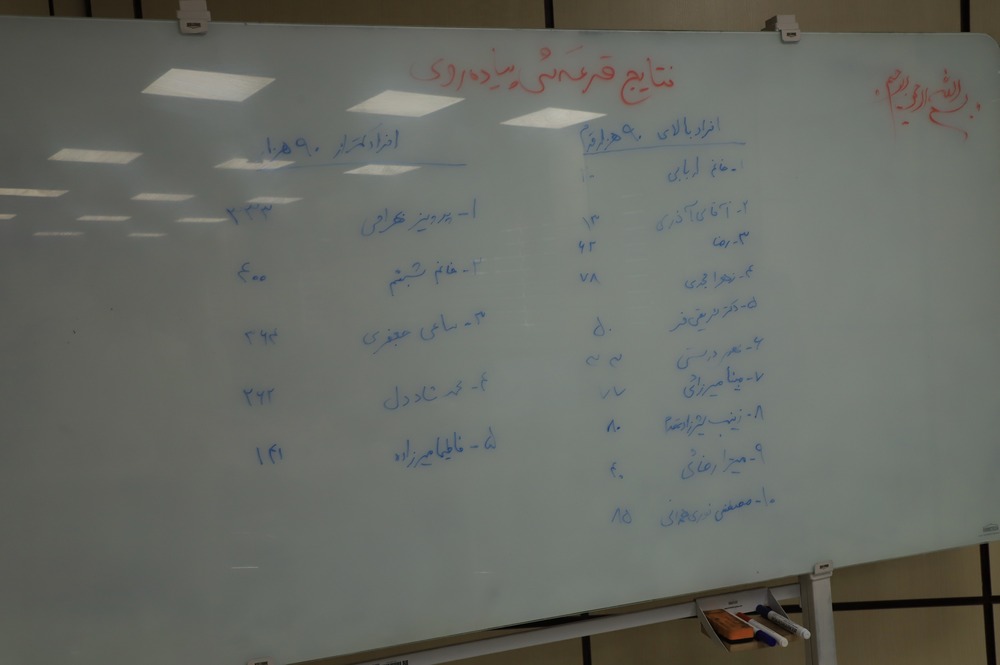 بسم الله الرحمن الرحیم
نتایج قرعه‌کشی پیاده‌روی
افراد بالای ۹۰ هزار قدم
۱- خانم اربابی
۲- آقای آذری ۱۳
۳- رضا ۶۲
۴- زهرا ۷۸
۵- دکتر شریفی فر ۵۰
۶-
۷- مینا میرزائی ۷۷
۸- زینب ۸۰
۹- میترا رضائی ۴۰
۱۰- مصطفی نوری همدانی ۸۵
افراد کمتر از ۹۰ هزار
۱- پرویز بهرامی ۳۳۳
۲- خانم شبنم ۴۰۰
۳- ساعی جعفری ۲۶۴
۴- محمد شاددل ۲۶۲
۵- فاطیما میرزاده ۱۴۱